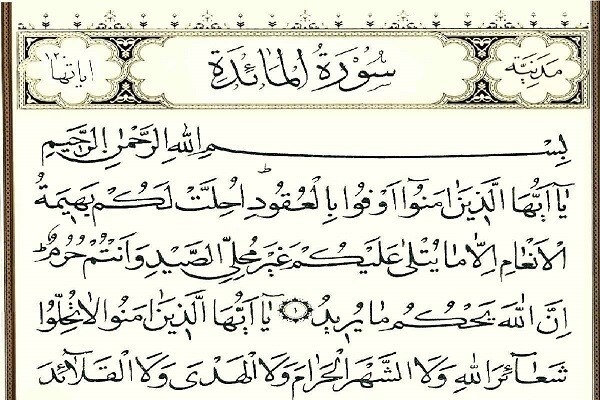 مدنية سورة المائدة اياتها ١٢٠
بسم الله الرحمن الرحيم
يا ايها الذين امنوا اوفوا بالعقود احلت لكم بهيمة
الانعام الا ما يتلى عليكم غير محلي الصيد وانتم حرم
ان الله يحكم ما يريد ١ يا ايها الذين امنوا لا تحلوا
شعائر الله ولا الشهر الحرام ولا الهدى ولا القلائد